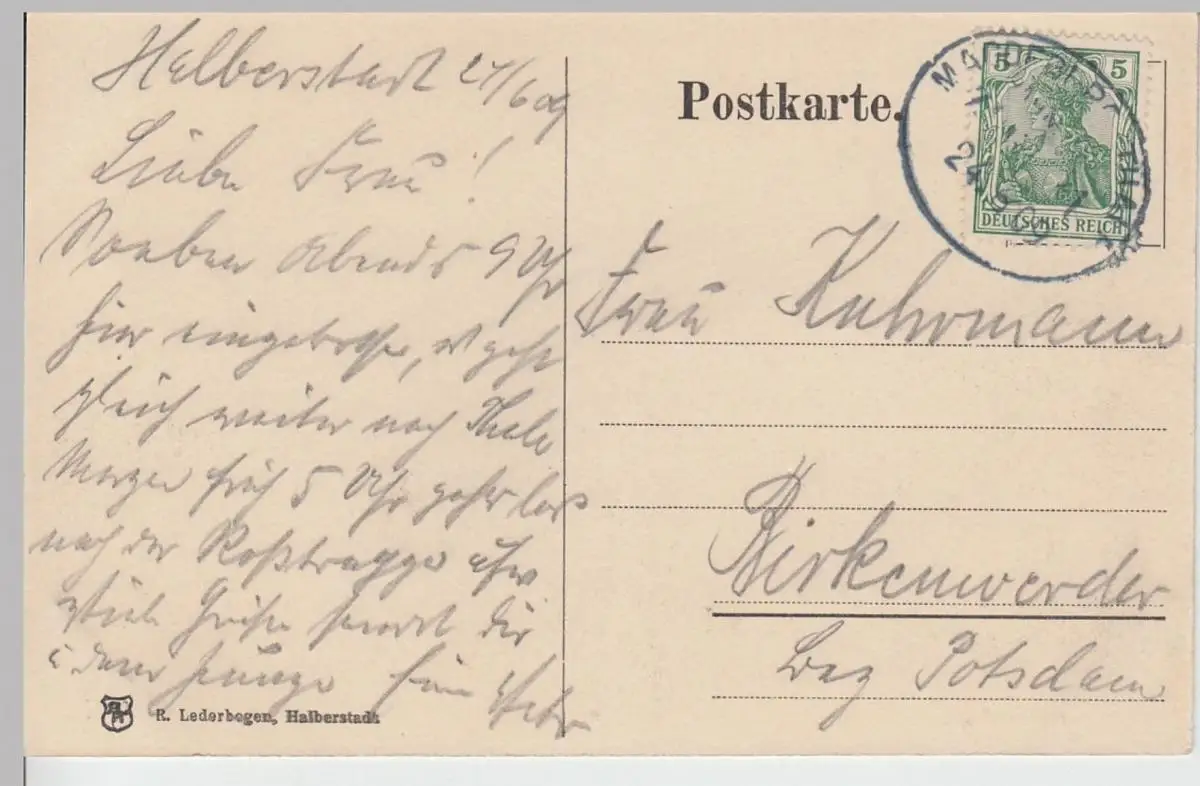 Halberstadt 24/6 09
Liebe Frau!
Soeben Abends 9 Uhr
hier eingetroffen, es geht
gleich weiter nach Thale
Morgen früh 5 Uhr geht es los
nach der Roßtrappe usw
Viele Grüße sendet Dir
u dem Junge
R. Lederbogen, Halberstadt
Postkarte.
MAGDEBURG THALE
24 6 09
5 5
DEUTSCHES REICH
Frau Kuhrmann
Birkenwerder
Bez Potsdam